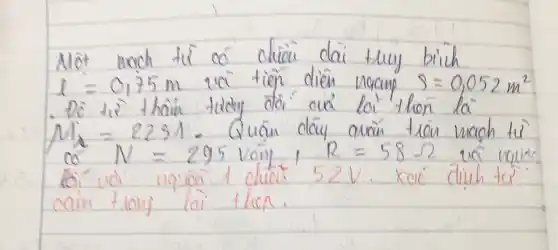 Một mạch từ có chiều dài trung bình
l = 0,75 m và tiện diện ngang S = 0,052 m²
. Độ từ thẩm tương đối của lõi thép là
M = 2231. Quấn dây quấn trên mạch từ
có N = 295 vòng, R = 58 Ω và
với nguồn 1 chiều 52V. xác định từ
cảm trong lõi thép.